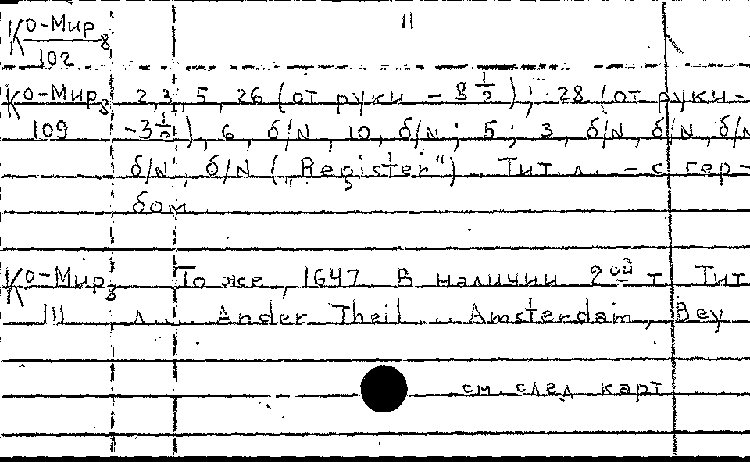 Ко-Мир 8 11
102
Ко-Мир 3 2, 3, 5, 26 (от руки - 8 1/2); 28 (от руки-
109 -3 1/2), 6, б/N, 10, б/N; 5; 3, б/N, б/N, б/N
б/N, б/N („Register"). Тит л. - с гер-
бом
Ко-Мир 3 То же, 1647. В наличии 2ой т. Тит
111 л... Ander Theil... Amsterdam, Bey
см. след карт